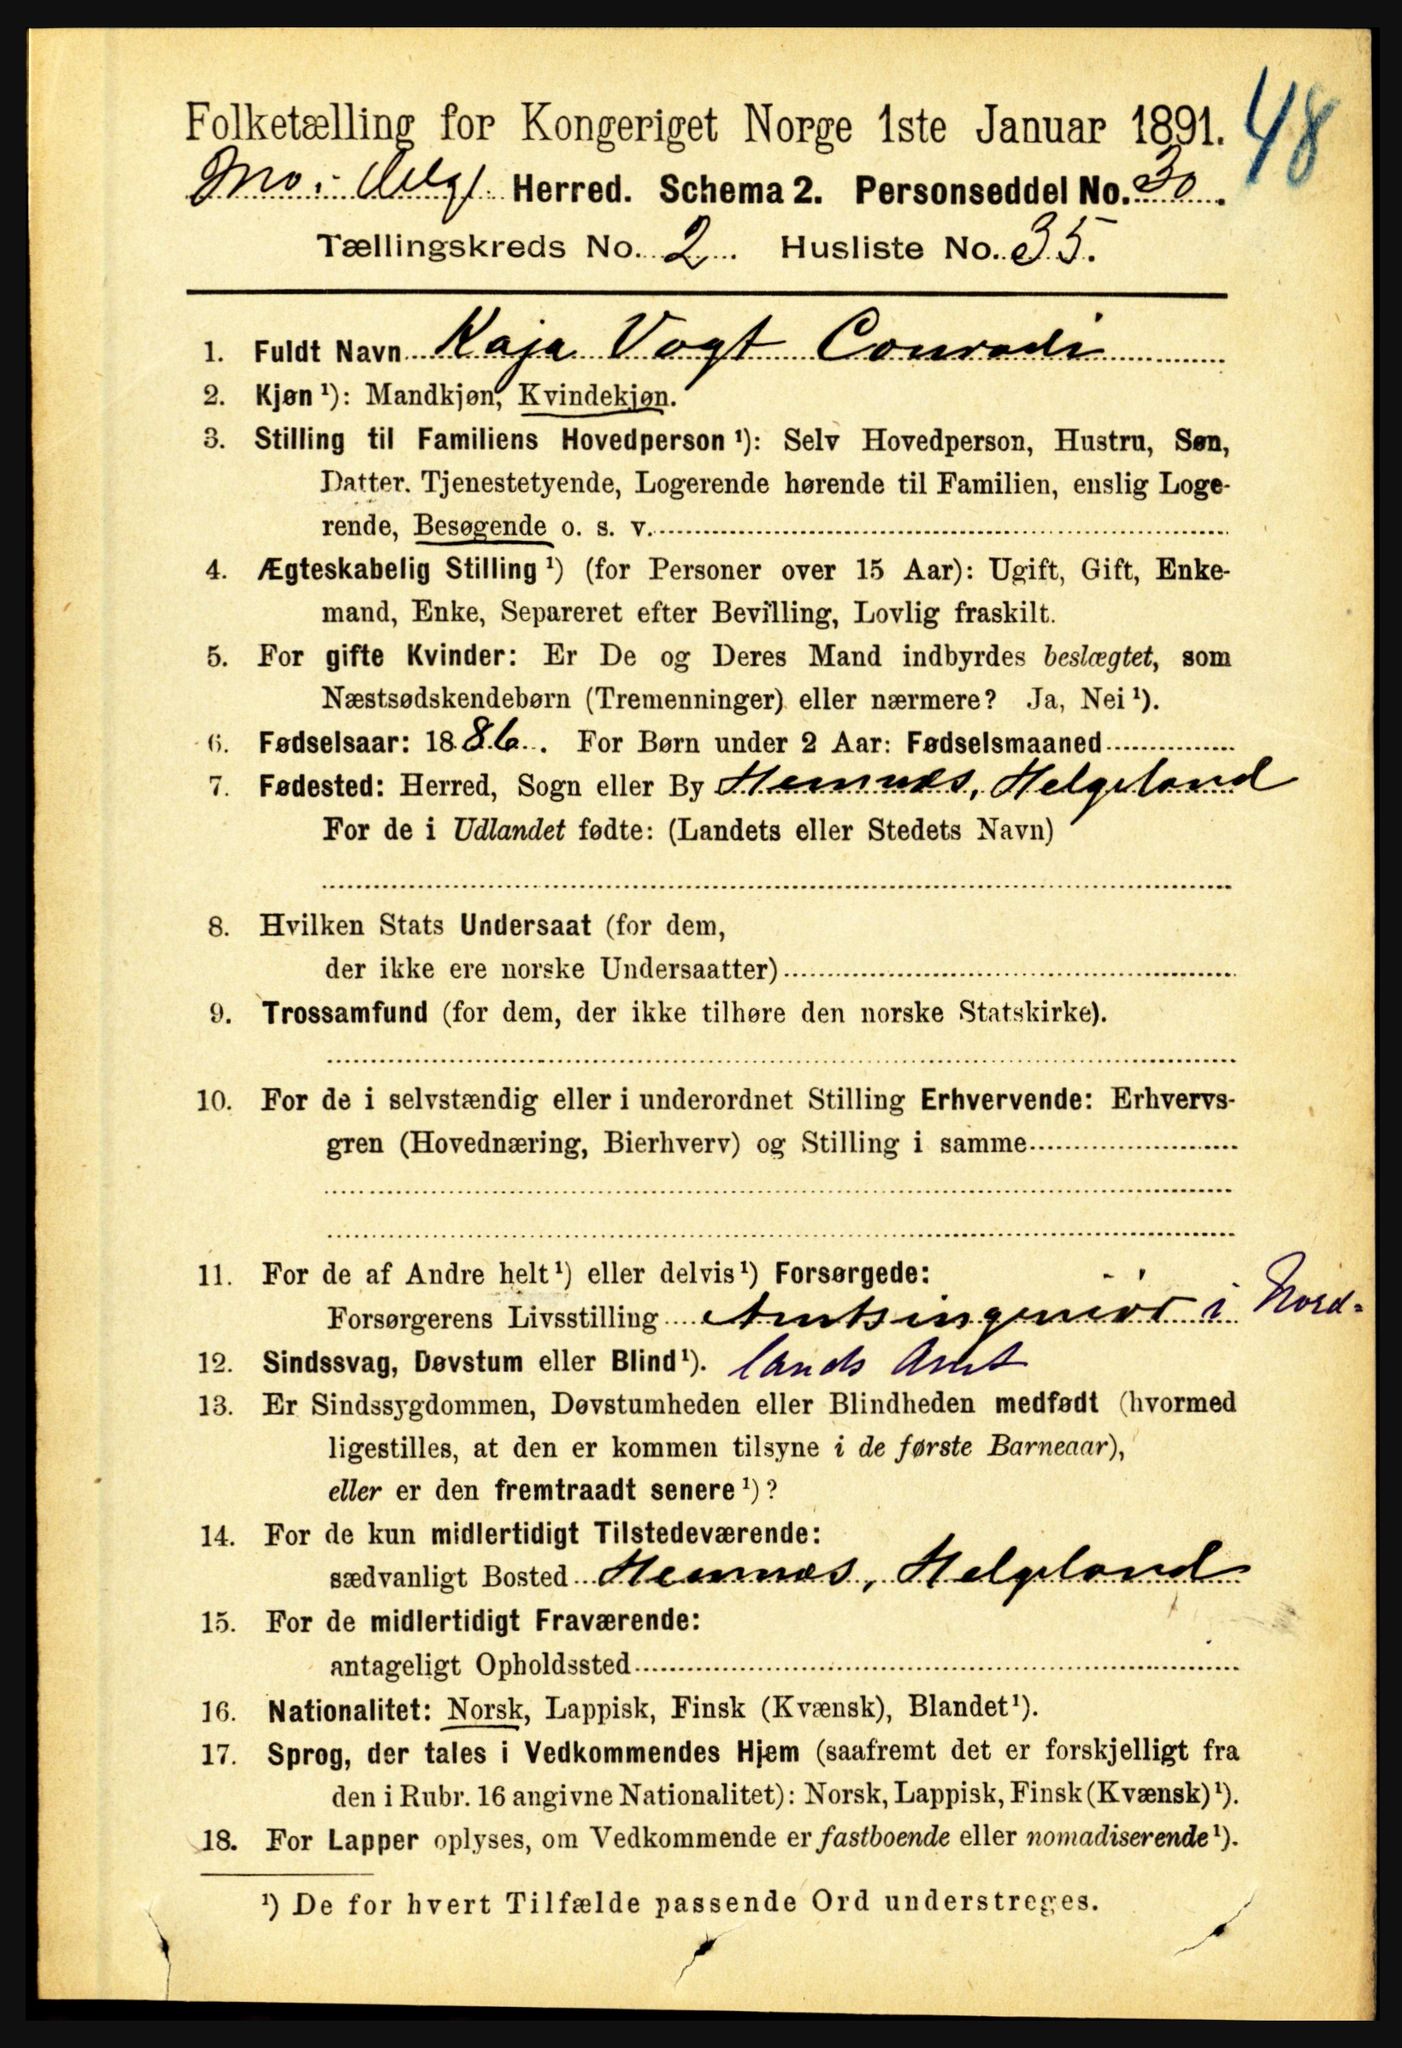 48
Folketælling for Kongeriget Norge 1ste Januar 1891.
Mo i Helgl. Herred. Schema 2. Personseddel No. 30.
Tællingskreds No. 2. Husliste No. 35.
1. Fuldt Navn Kaja Vogt Conradi
2. Kjøn ¹): Mandkjøn, Kvindekjøn.
3. Stilling til Familiens Hovedperson ¹): Selv Hovedperson, Hustru, Søn,
Datter. Tjenestetyende, Logerende hørende til Familien, enslig Loge-
rende, Besøgende o. s. v.
4. Ægteskabelig Stilling ¹) (for Personer over 15 Aar): Ugift, Gift, Enke-
mand, Enke, Separeret efter Bevilling, Lovlig fraskilt.
5. For gifte Kvinder: Er De og Deres Mand indbyrdes beslægtet, som
Næstsødskendebørn (Tremenninger) eller nærmere? Ja, Nei ¹).
6. Fødselsaar: 1886. For Børn under 2 Aar: Fødselsmaaned
7. Fødested: Herred, Sogn eller By Hemnæs, Helgeland
For de i Udlandet fødte: (Landets eller Stedets Navn)
8. Hvilken Stats Undersaat (for dem,
der ikke ere norske Undersaatter)
9. Trossamfund (for dem, der ikke tilhøre den norske Statskirke).
10. For de i selvstændig eller i underordnet Stilling Erhvervende: Erhvervs-
gren (Hovednæring, Bierhverv) og Stilling i samme
11. For de af Andre helt ¹) eller delvis ¹) Forsørgede:
Forsørgerens Livsstilling Amtsingeniør i Nord-
12. Sindssvag, Døvstum eller Blind ¹). lands Amt
13. Er Sindssygdommen, Døvstumheden eller Blindheden medfødt (hvormed
ligestilles, at den er kommen tilsyne i de første Barneaar),
eller er den fremtraadt senere ¹)?
14. For de kun midlertidigt Tilstedeværende:
sædvanligt Bosted Hemnæs, Helgeland
15. For de midlertidigt Fraværende:
antageligt Opholdssted
16. Nationalitet: Norsk, Lappisk, Finsk (Kvænsk), Blandet ¹).
17. Sprog, der tales i Vedkommendes Hjem (saafremt det er forskjelligt fra
den i Rubr. 16 angivne Nationalitet): Norsk, Lappisk, Finsk (Kvænsk) ¹).
18. For Lapper oplyses, om Vedkommende er fastboende eller nomadiserende ¹).
¹) De for hvert Tilfælde passende Ord understreges.